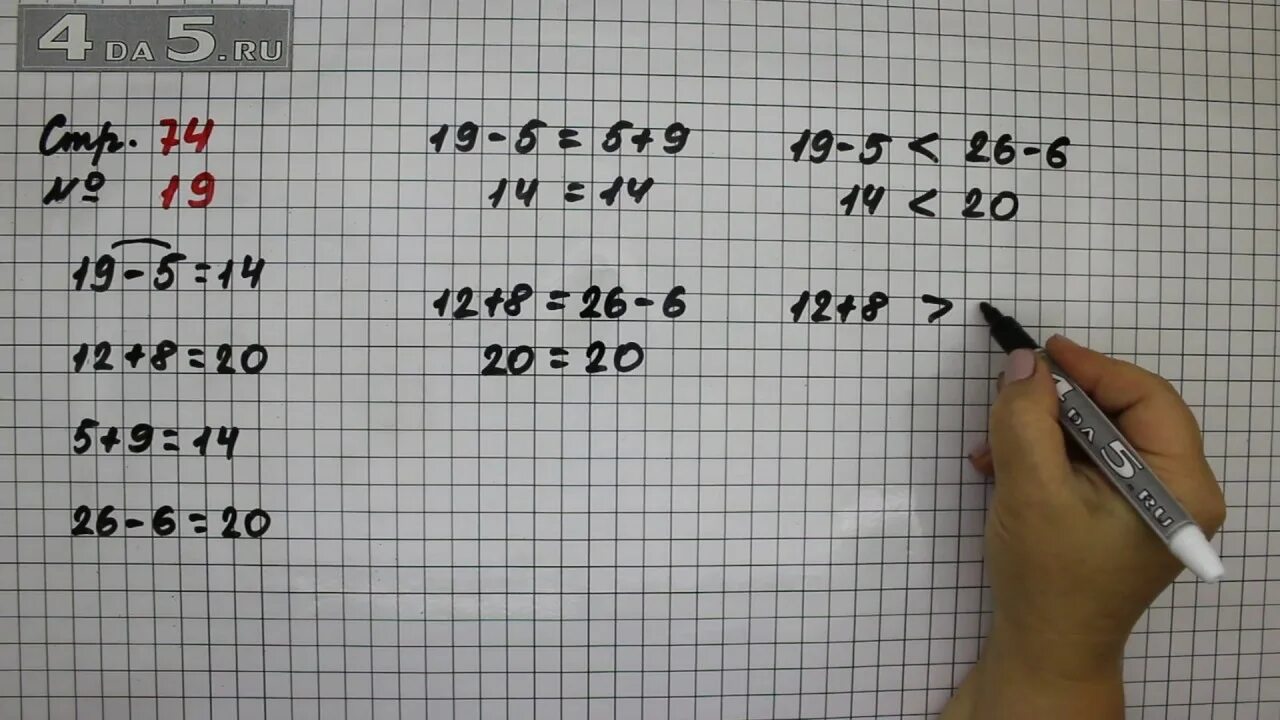 4DA5.RU
Стр. 74
№ 19
19-5=14
12+8=20
5+9=14
26-6=20
19-5=5+9
14=14
12+8=26-6
20=20
19-5<26-6
14<20
12+8>
4DA5.RU